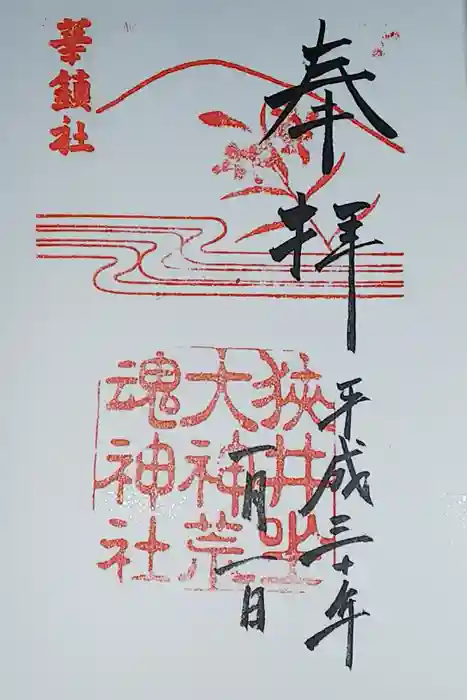 奉拝
平成三十年
一月一日
狹井坐
大神荒
魂神社
華鎮社